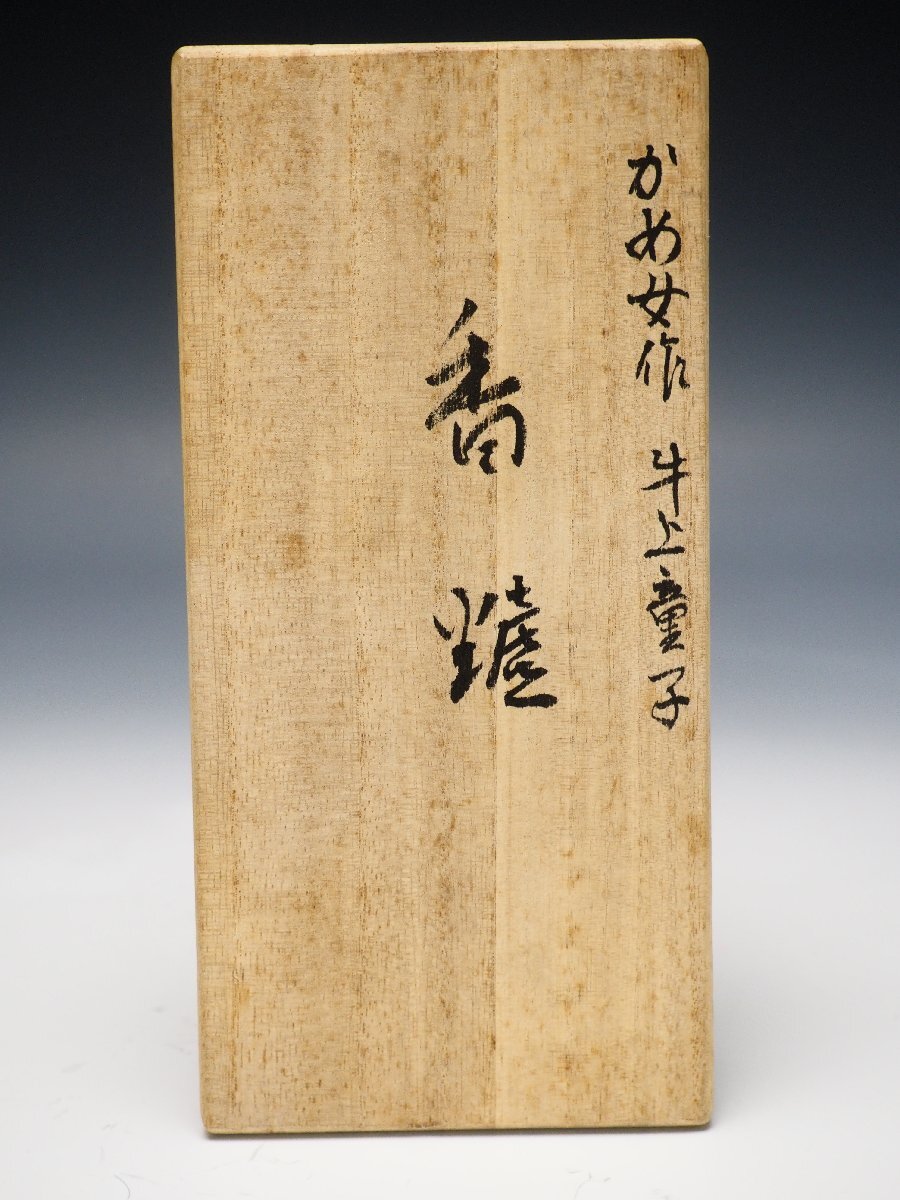 かめ女作 牛上童子
香鑪